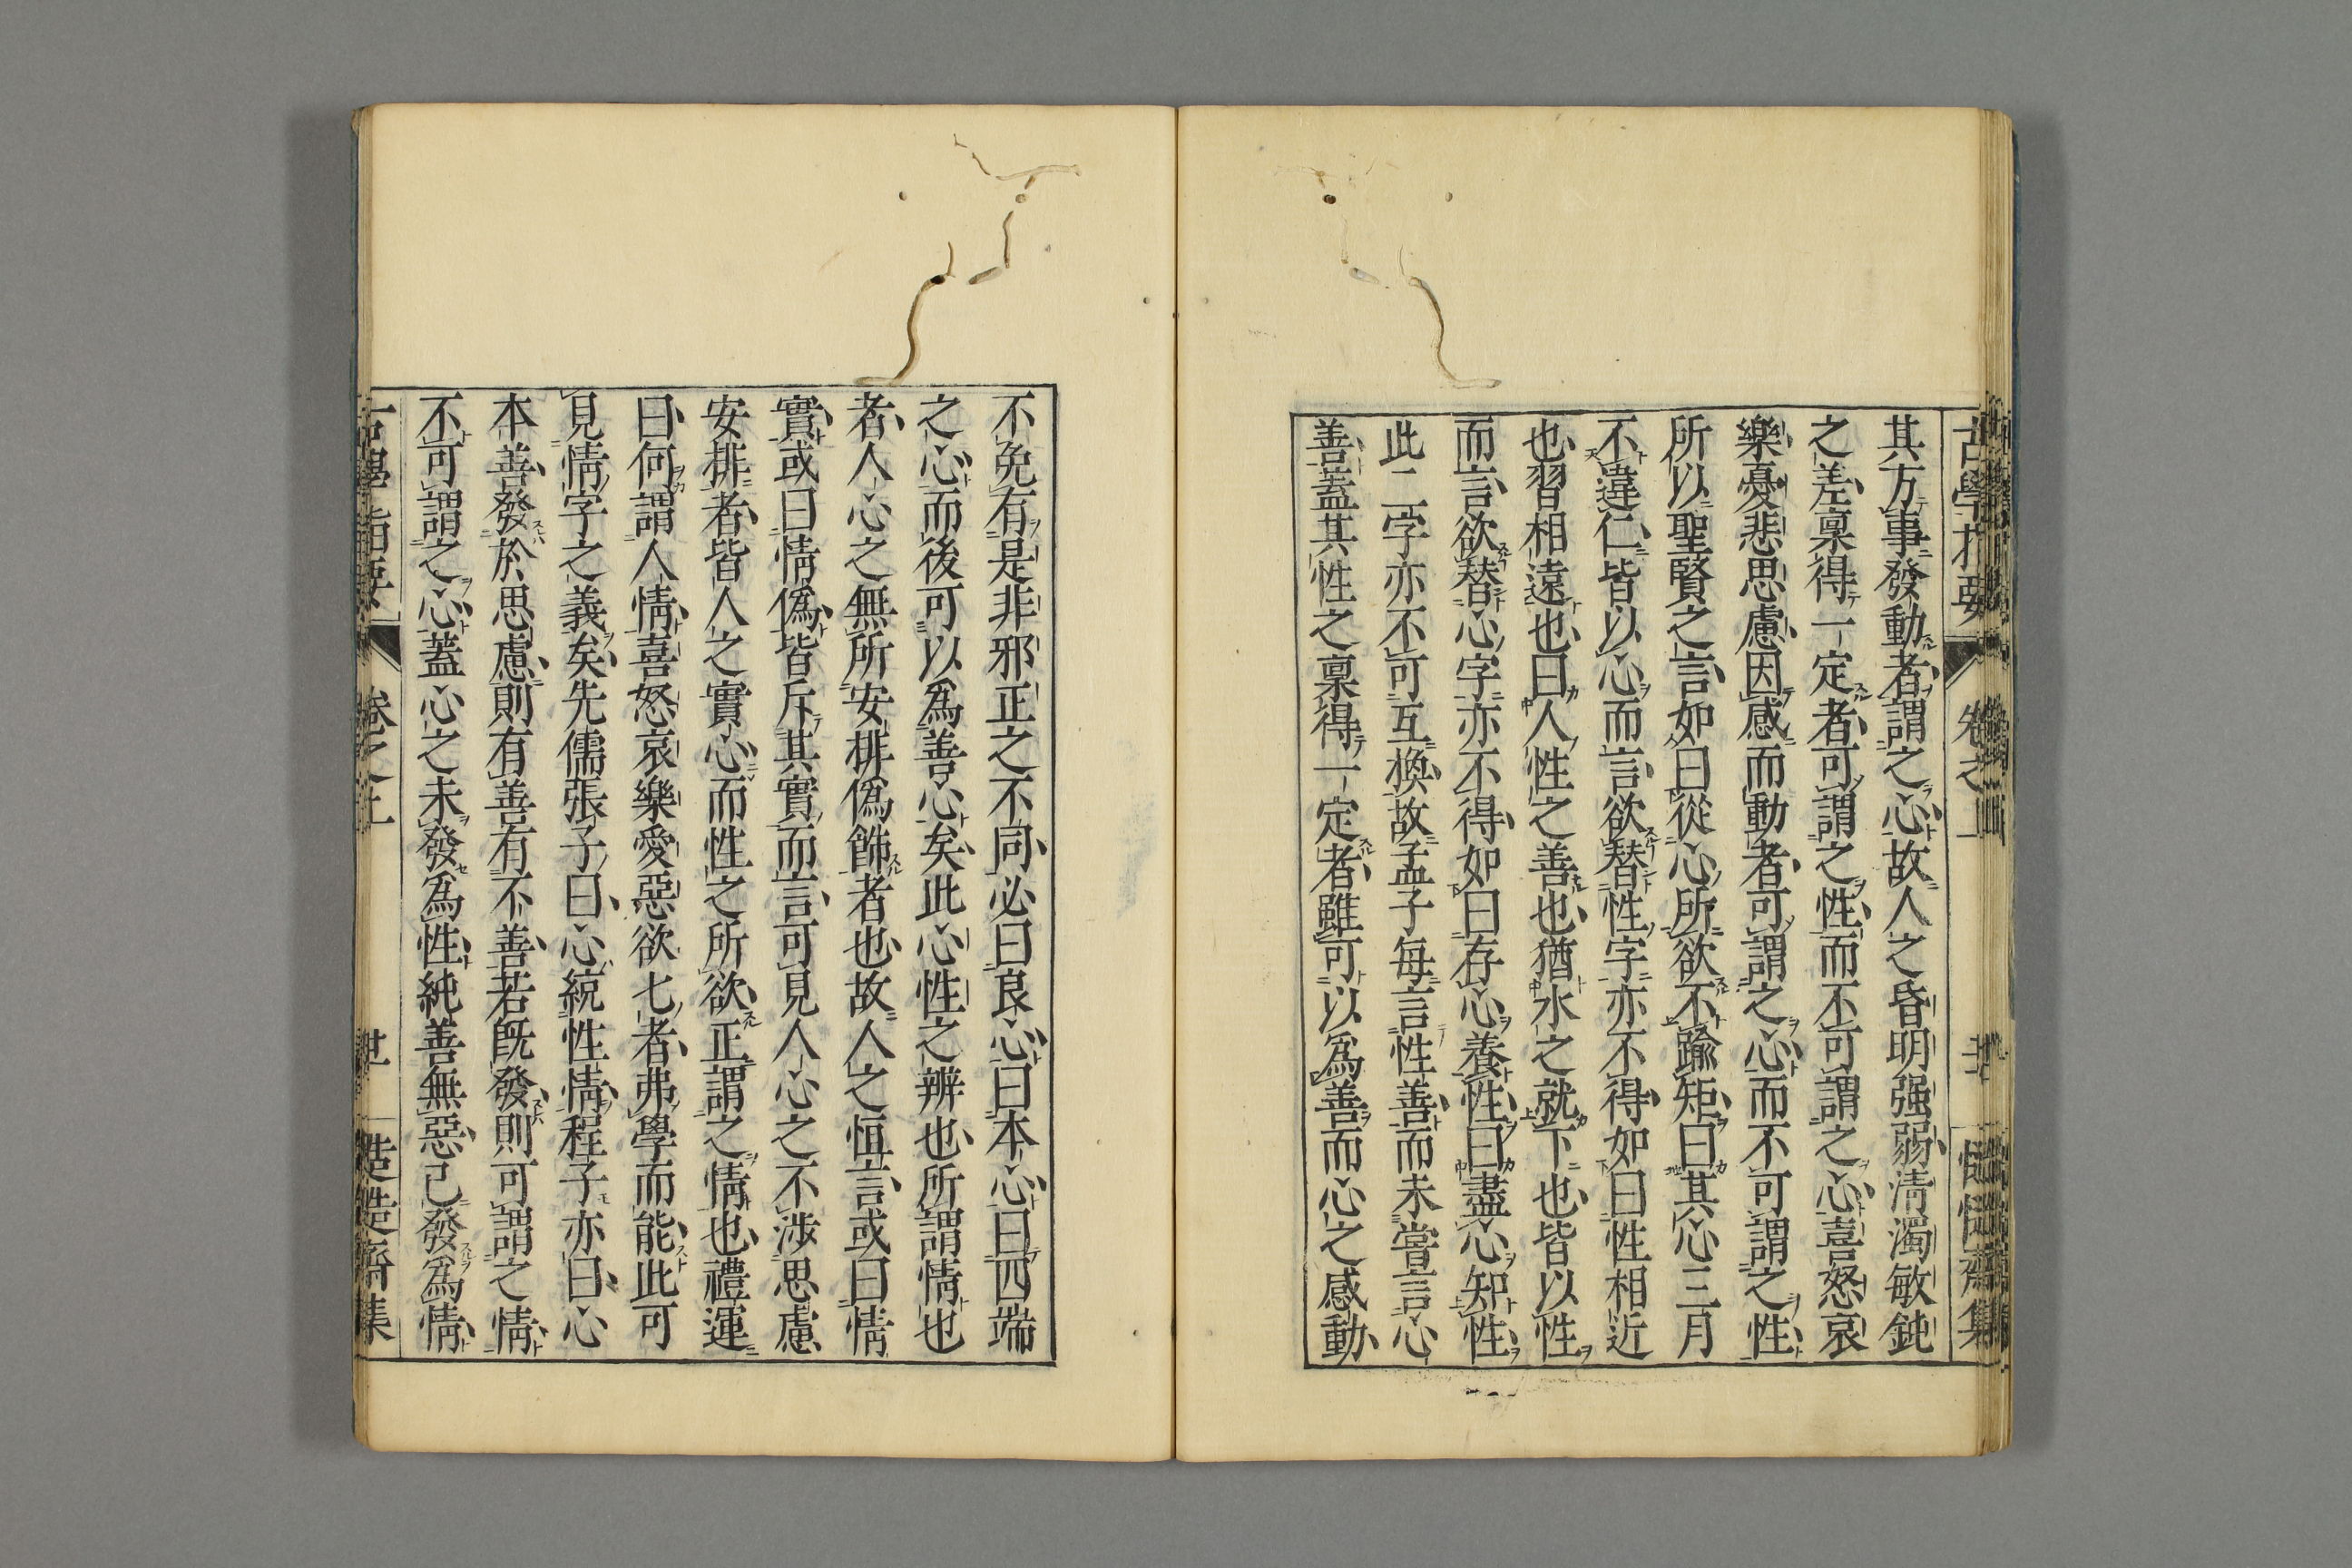 其方事發動者謂之心故人之昏明强弱清濁敏鈍
之差稟得一定者可謂之性而不可謂之心喜怒哀
樂憂悲思慮因感而動者可謂之心而不可謂之性
所以聖賢之言如曰從心所欲不踰矩曰其心三月
不違仁皆以心而言欲替性字亦不得如曰性相近
也習相遠也曰人性之善也猶水之就下也皆以性
而言欲替心字亦不得如曰存心養性曰盡心知性
此二字亦不可互換故孟子每言性善而未嘗言心
善蓋其性之稟得一定者雖可以爲善而心之感動
不免有是非邪正之不同必曰良心曰本心曰四端
之心而後可以爲善心矣此心性之辨也所謂情也
者人心之無所安排僞飾者也故人之恒言或曰情
實或曰情僞皆斥其實而言可見人心之不涉思慮
安排者皆人之實心而性之所欲正謂之情也禮運
曰何謂人情喜怒哀樂愛惡欲七者弗學而能此可
見情字之義矣先儒張子曰心統性情程子亦曰心
本善發於思慮則有善有不善若既發則可謂之情
不可謂之心蓋心之未發爲性純善無惡已發爲情